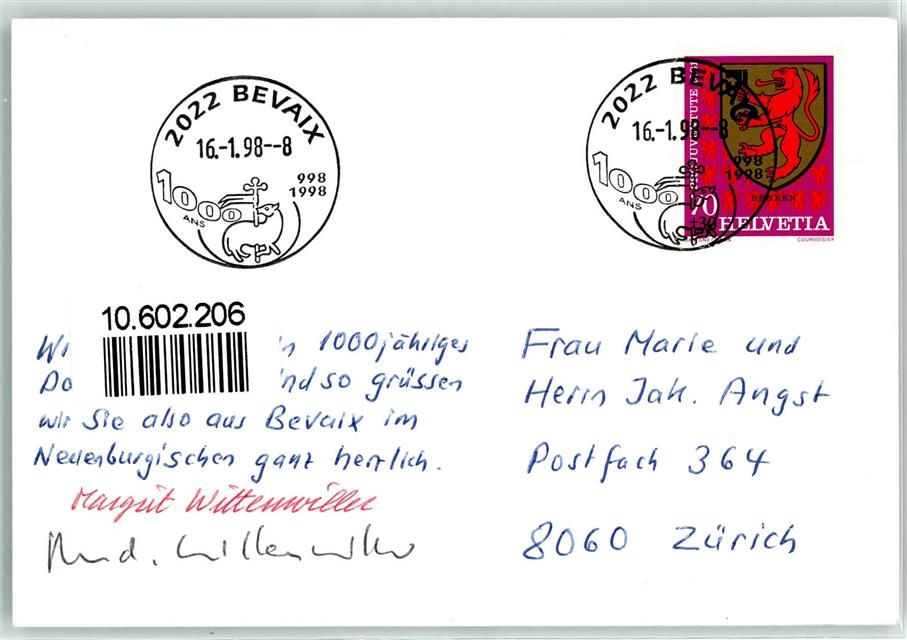 2022 BEVAIX
16.-1.98--8
998
1998
1000
ANS
2022 BEVAIX
16.-1.98--8
998
1998
1000
ANS
PRO JUVENTUTE 1981
BENKEN
70
+30
HELVETIA
COURVOISIER
10.602.206
1000jähriges
so grüssen
wir Sie also aus Bevaix im
Neuenburgischen ganz herzlich.
Margrit Wittenwiller
Frau Marie und
Herrn Jak. Angst
Postfach 364
8060 Zürich